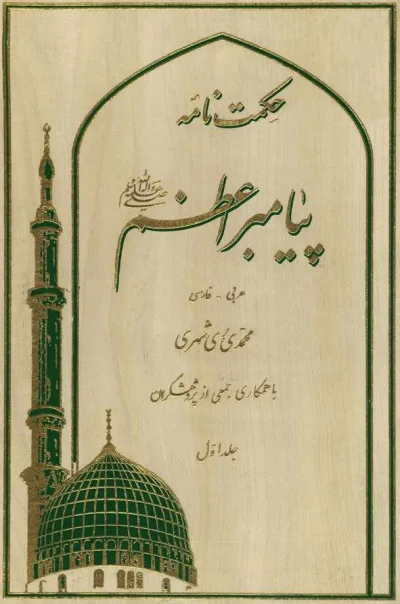 حکمت نامه
پیامبر اعظم صلی الله علیه و آله وسلم
عربی - فارسی
محمدی ری شهری
با همکاری جمعی از پژوهشگران
جلد اول